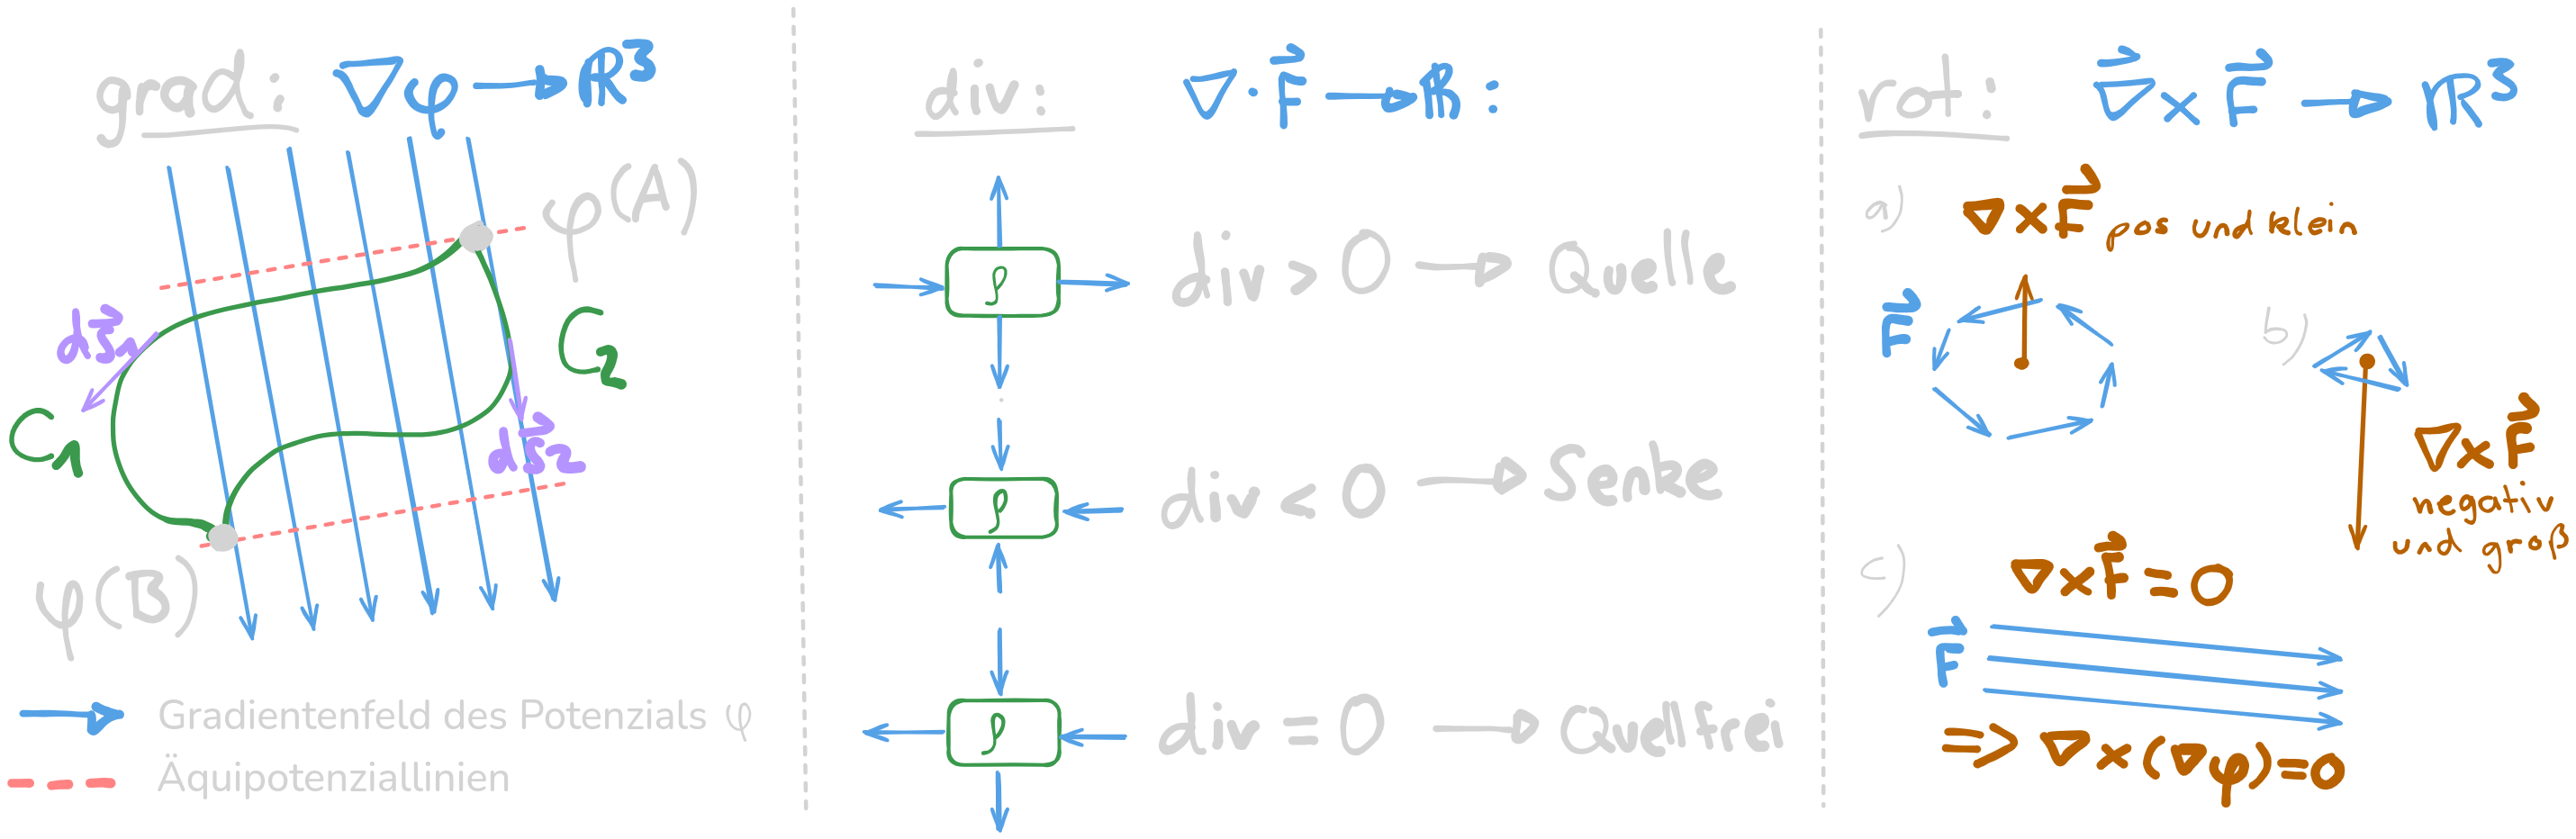 grad: ∇φ → ℝ³
φ(A)
ds⃗₁
C₂
C₁
ds⃗₂
φ(B)
Gradientenfeld des Potenzials φ
Äquipotenziallinien
div: ∇·F⃗ → ℝ:
ρ
div > 0 → Quelle
ρ
div < 0 → Senke
ρ
div = 0 → Quellfrei
rot: ∇⃗ × F⃗ → ℝ³
a) ∇×F⃗ pos und klein
F⃗
b)
∇×F⃗
negativ
und groß
c) ∇×F⃗ = 0
F⃗
⇒ ∇×(∇φ)=0